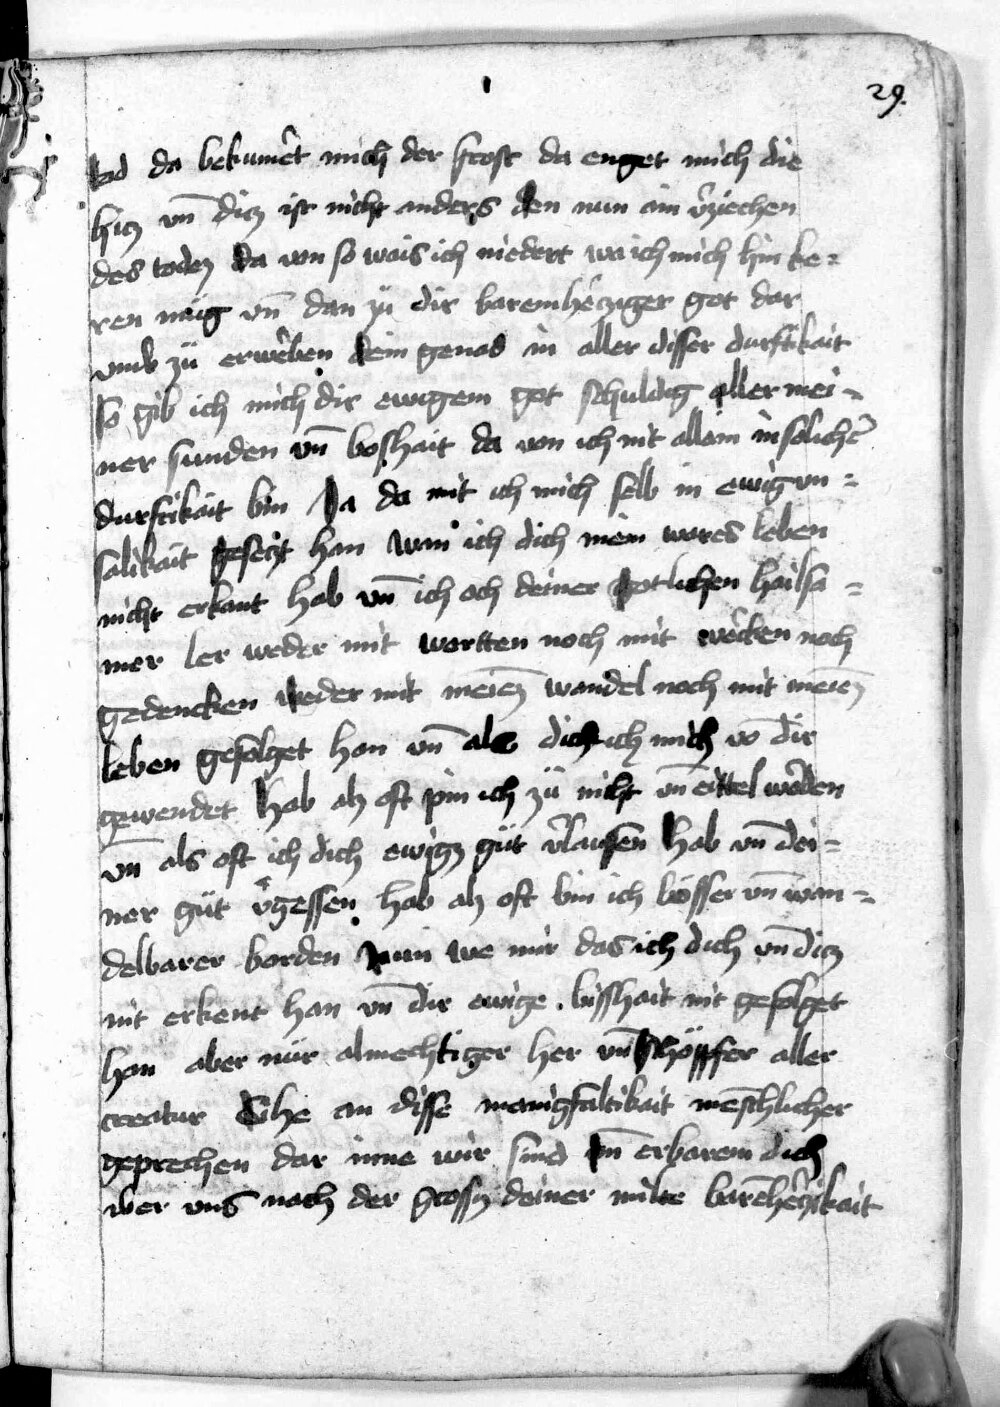 29.
kad da bekumēt mich der frost da enget mich die
hicz vn̄ dicz ist nicht anders den nun ain v̄ziechen
des todez da von so wais ich niedert wa ich mich hin ke=
ren müg vn̄ dan zü dir baremhēcziger got dar
vmb zü erwēben dein genad in aller disser durftikait
so gib ich mich dir ewigem got schuldig aller mei=
ner sunden vn̄ boshait da von ich nit allain in solichē
durftikait bin Ja da mit ich mich selb in ewig vn=
salikait geseczt han wan ich dich mein wares leben
nicht erkant hab vn̄ ich och deiner gotlichen hailsa=
mer ler weder mit wortten noch mit wēcken noch
gedencken weder mit meinē wandel noch mit meinē
leben gefolget han vn̄ als dick ich mich vō dir
gewendet hab alz oft pin ich zü nicht vn̄ eittel wōden
vn̄ als oft ich dich ewigz güt v̄lausen hab vn̄ dei=
ner güt v̄gessen hab alz oft bin ich bösser vn̄ wan=
delbarer borden Nun we mir das ich dich vn̄ dicz
nit erkent han vn̄ dir ewige bisshait nit gefolget
han aber nür almechtiger her vn̄ schöpffer aller
creatur Sihe an disse manigfaltikait mēschlicher
geprechen dar inne wir sind vn̄ erbarem dich
vber vns nach der grossz deiner milte barēhēczikait